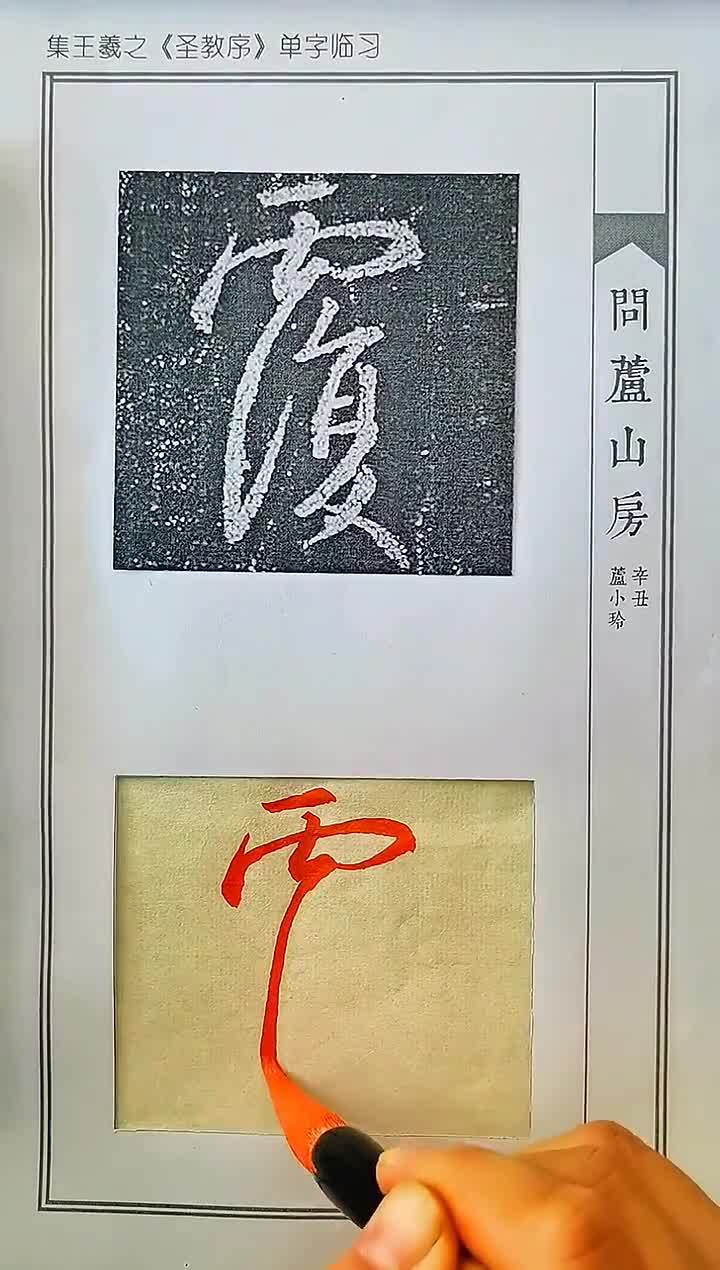 集王羲之《圣教序》单字临习
覆
問蘆山房
辛丑
蘆小玲